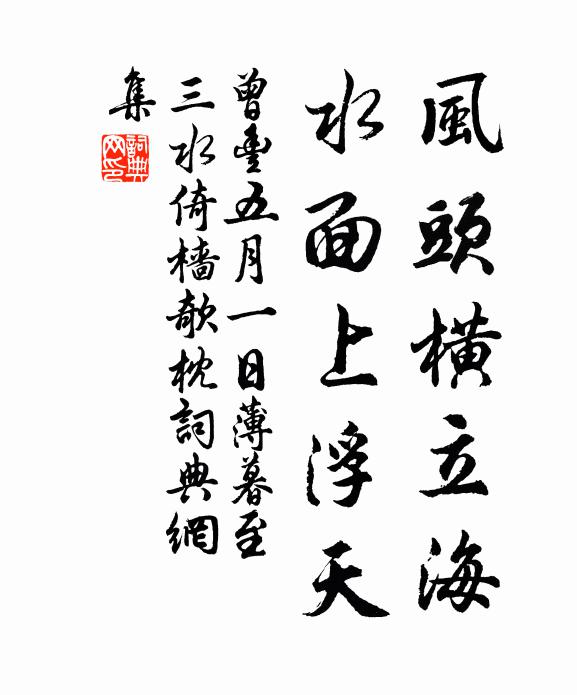 風頭橫立海
水面上浮天
曾豐五月一日薄暮至
三水倚檣欹枕詞典網
集
詞典网印